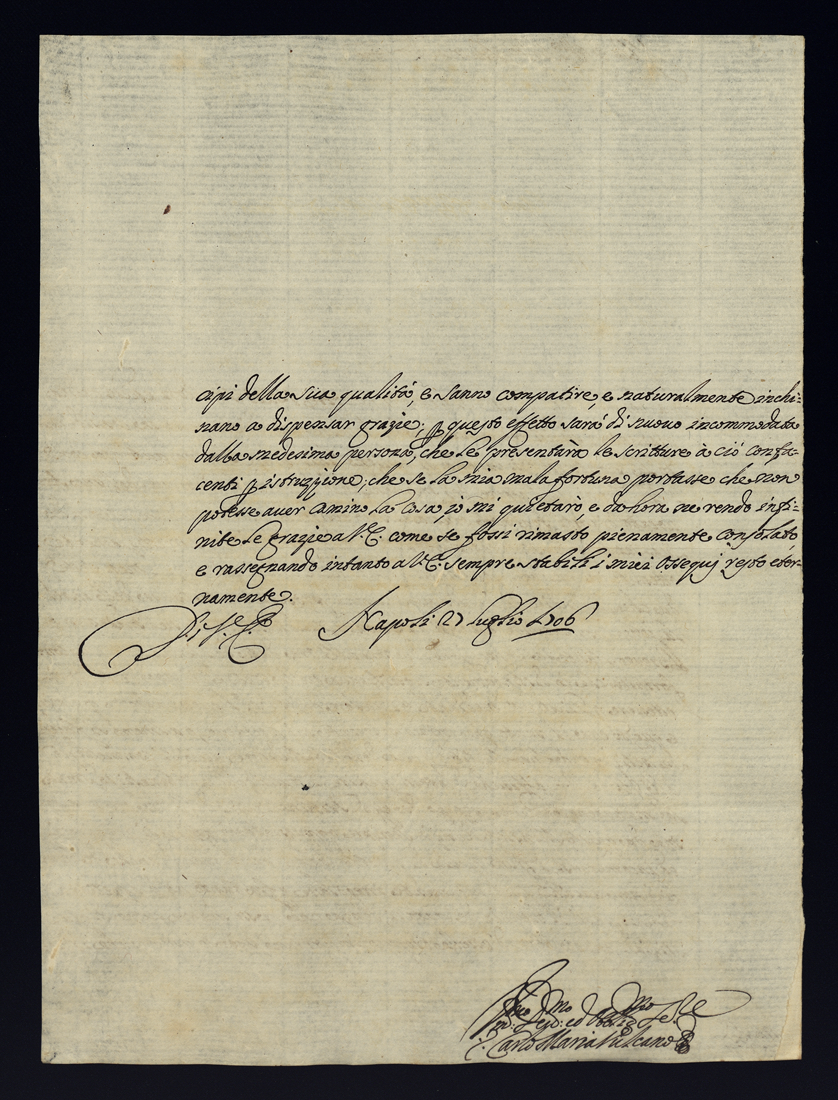 cipi della sua qualità, e sanno compatire, e naturalmente inchi=
nano a dispensar grazie; p questo effetto sarà di nuovo incommodata
dalla medesima persona, che le presentarà le scritture à ciò confa=
centi p istruzzione; che se la mia mala fortuna portasse che non
potesse aver camino la cosa, io mi quietarò, e da hora ne rendo infi=
nite le grazie a V.E. come se fossi rimasto pienamente consolato,
e rassegnando intanto a V.E. sempre stabili i miei ossequj resto eter=
namente.
Di V. E. Napoli 27 luglio 1706
Dev: ed Obblig
Carlo Maria Vulcano